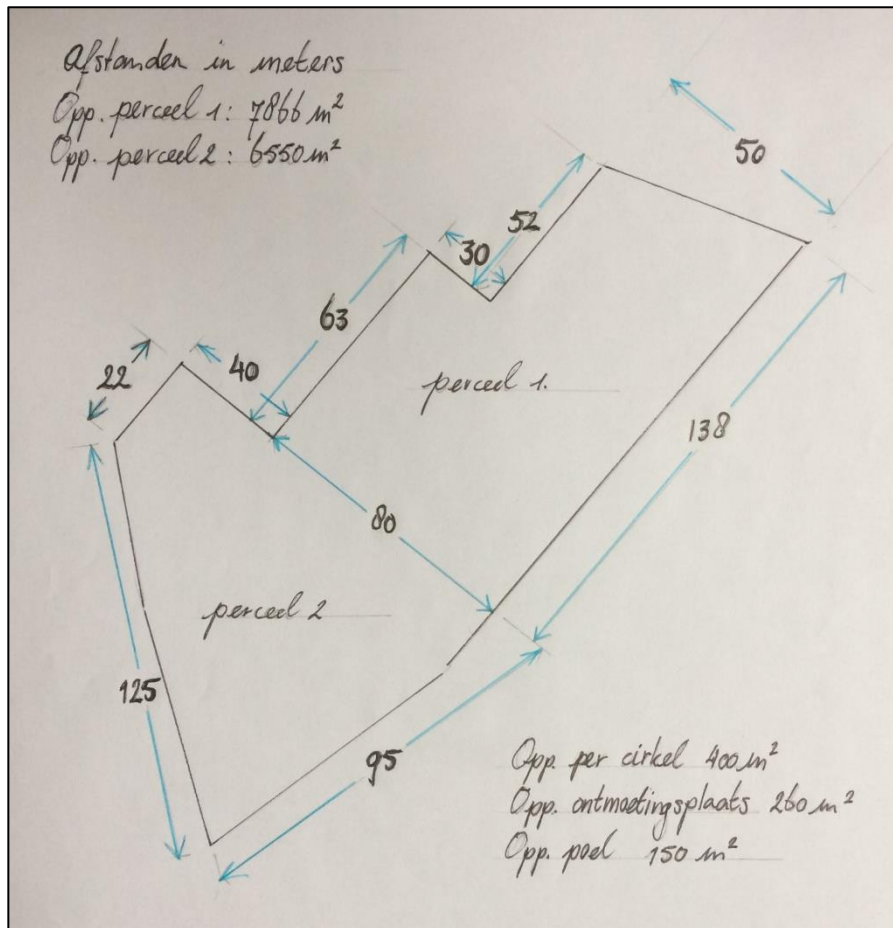 Afstanden in meters
Opp. perceel 1: 7866 m²
Opp. perceel 2: 6550 m²
50
52
30
63
22
40
perceel 1.
138
80
perceel 2
125
95
Opp. per cirkel 400 m²
Opp. ontmoetingsplaats 260 m²
Opp. poel 150 m²